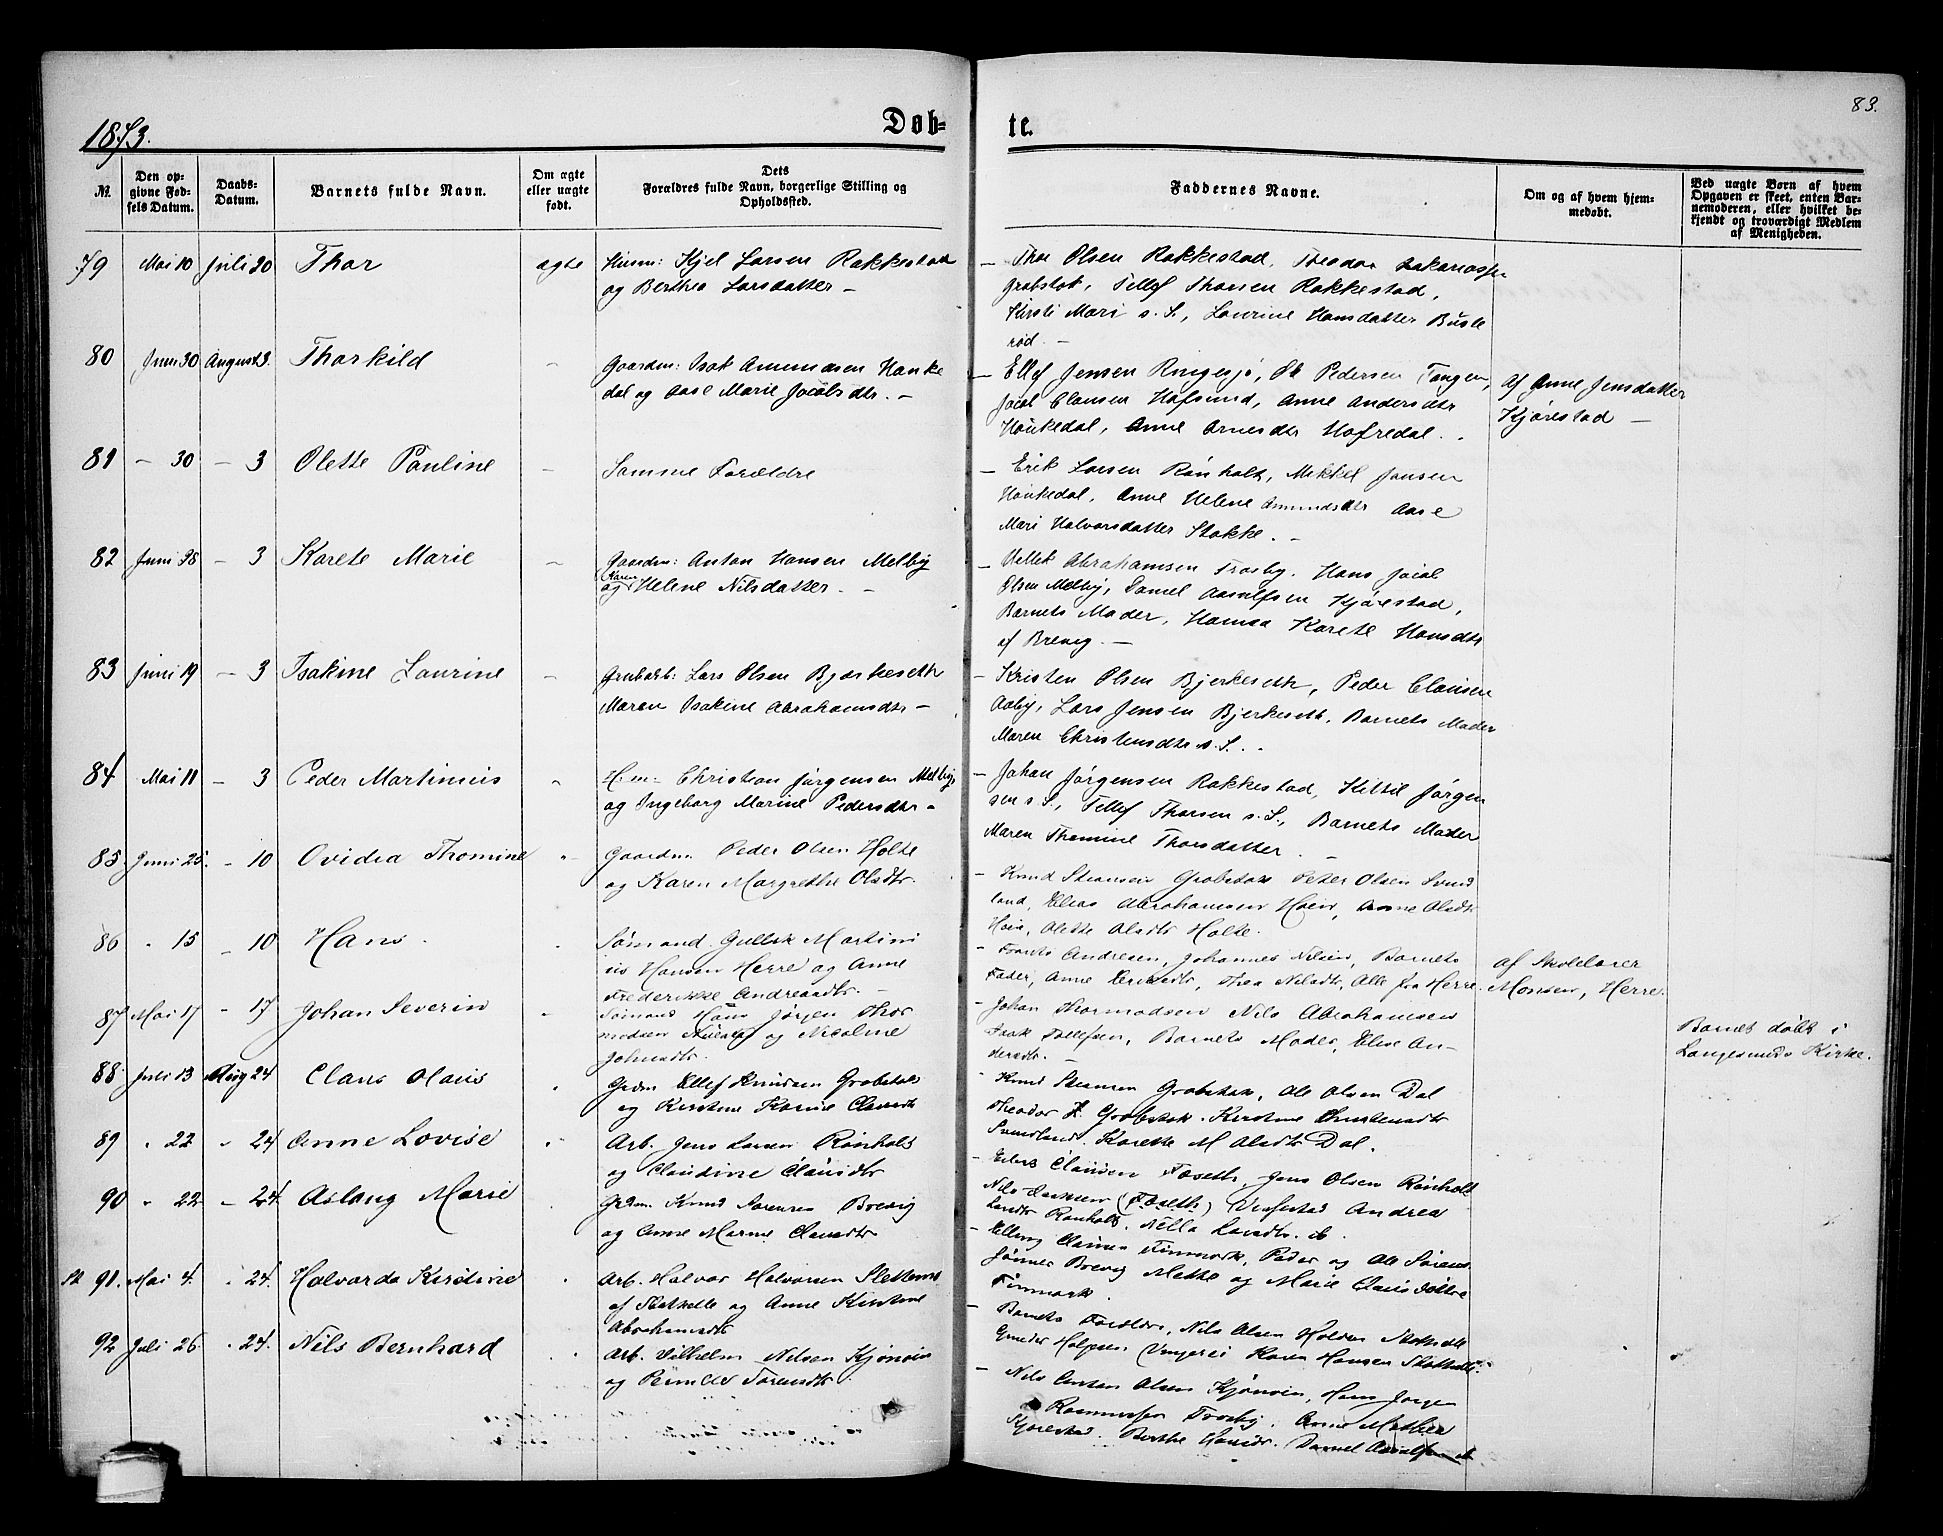 83.
1873.
Døb-
te.
№.
Den op-
givne Fød-
sels Datum.
Daabs-
Datum.
Barnets fulde Navn.
Om ægte
eller uægte
født.
Dets
Forældres fulde Navn, borgerlige Stilling og
Opholdssted.
Faddernes Navne.
Om og af hvem hjem-
medøbt.
Ved uægte Børn af hvem
Opgaven er skeet, enten Bar-
nemoderen, eller hvilket be-
kjendt og troværdigt Medlem
af Menigheden.
79 Mai 10 Juli 20 Thor ægte Husm: Kjel Larsen Rakkestad
og Berthea Larsdatter –
– Thor Olsen Rakkestad, Theodor Zakariassen
Grobstok, Tellef Thorsen Rakkestad,
Kirsti Mari s. S., Laurine Hansdatter Bustе
rød. –
80 Juni 30 August 3. Thorkild – Gaardm: Isak Amundsen Hauke
dal og Aase Marie Jacobsdtr. –
– Ellef Jensen Ringesjø, Ole Pedersen Tangen,
Jacob Clausen Hafsund, Anne Andersdtr
Haukedal, Anne Arnesdtr Hafredal.
Af Anne Jensdatter
Kjørestad –
81 – 30 – 3 Olette Pauline – Samme Forældre
– Erik Larsen Rønholt, Mikkel Jansen
Haukedal, Anne Helene Amundsdtr Aase
Mari Halvorsdatter Stokke. –
82 Juni 28 – 3 Karete Marie – Gaardm: Anton Hansen Melby
og Karen Helene Nilsdatter. –
– Vetlek Abrahamsen Trosby, Hans Jacob
Olsen Melby, Daniel Aasulfsen Kjørestad,
Barnets Moder, Hansa Karete Hansdtr
af Brevig. –
83 Juni 19 – 3 Isakine Laurine – Grubarb: Lars Olsen Bjerkeseth
Maren Isakine Abrahamsdtr –
– Kristen Olsen Bjerkeseth, Peder Clausen
Aaby, Lars Jensen Bjerkeseth, Barnets Moder
Maren Christensdtr s. S.
84 Mai 11 – 3 Peder Martinius – H.m: Christian Jørgensen Melby
og Ingeborg Marine Pedersdtr –
– Johan Jørgensen Rakkestad, Kittil Jørgen
sen s. S., Tellef Thorsen s. S., Barnets Moder
Maren Thomine Thorsdatter. –
85. Juni 25. – 10 Ovidia Thomine " Gaardm Peder Olsen Holte
og Karen Margrethe Olsdtr.
– Knud Steansen Grobstok Peter Olsen Svind
land, Elias Abrahamsen Høen, Anne Olsdtr
Høen, Olette Olsdtr Holte.
86 " 15 – 10 Hans. Sømand Gullik Martini
us Hansen Herre og Anne
Frederikke Andreasdtr. –
– Frants Andresen, Johannes Nilsen, Barnets
Fader, Anne Eriksdtr, Thea Nilsdtr, Alle fra Herre.
af Skolelærer
Monsen, Herre.
87 Mai 17 – 17 Johan Severin Sømand Hans Jørgen Thor
modsen og Nicoline
Johnsdtr.
– Johan Thormodsen Nils Abrahamsen
Isak Tollefsen, Barnets Moder, Elise An-
dersdtr. –
Barnet døbt i
Langesunds Kirke.
88. Juli 13 Aug 24 Claus Olaus Grdm Ellef Knudsen Grobstok
og Kirstine Karine Clausdtr
– Knud Steansen Grobstok, Ole Olsen Dal
Theodor Z. Grobstok. Kirstine Christensdtr
Svindland. Karette M Olsdtr Dal.
89 " 22 " 24 Anne Lovise Arb. Jens Larsen Rønholt
og Claudine Clausdtr
– Eilert Clausen Foseth, Jens Olsen Rønholt
Nils (Foseth) Andrea
Larsdtr Rønholt. Nella Larsdtr. ib.
90 " 22 – 24. Aslaug Marie Grdm. Knud Sørensen Brevig
og Anne Marine Clausdtr
– Elling Clausen Finmark, Peder og Ole Sørens
sønner Brevig Mette og Marie Clausdøttre
Finmark.
91. Mai 4. " 24. Halvorda Kirstine Arb. Halvor Halvorsen Slettene
af Stathelle og Anne Kirstine
Abrahamsdtr
– Barnets Forældre, Nils Olsen Holden Stathelle
Karen Hansen Stathelle.
92 Juli 26. " 24. Nils Bernhard Arb. Vilhelm Nilsen Kjønøen
og Pernille Sørensdtr.
– Nils Anton Olsen Kjønøen, Hans Jørgen
Rasmussen Trosby, Anne Mathea
Kjørestad. Berthe Hansdtr. Daniel Aasulfsen ib